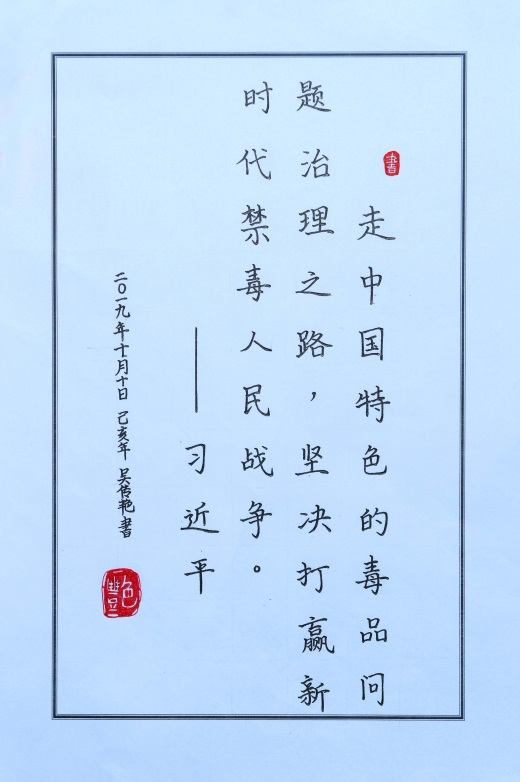 書
走中国特色的毒品问
题治理之路，坚决打赢新
时代禁毒人民战争。
——习近平
二〇一九年十月十日 己亥年 吴传艳書